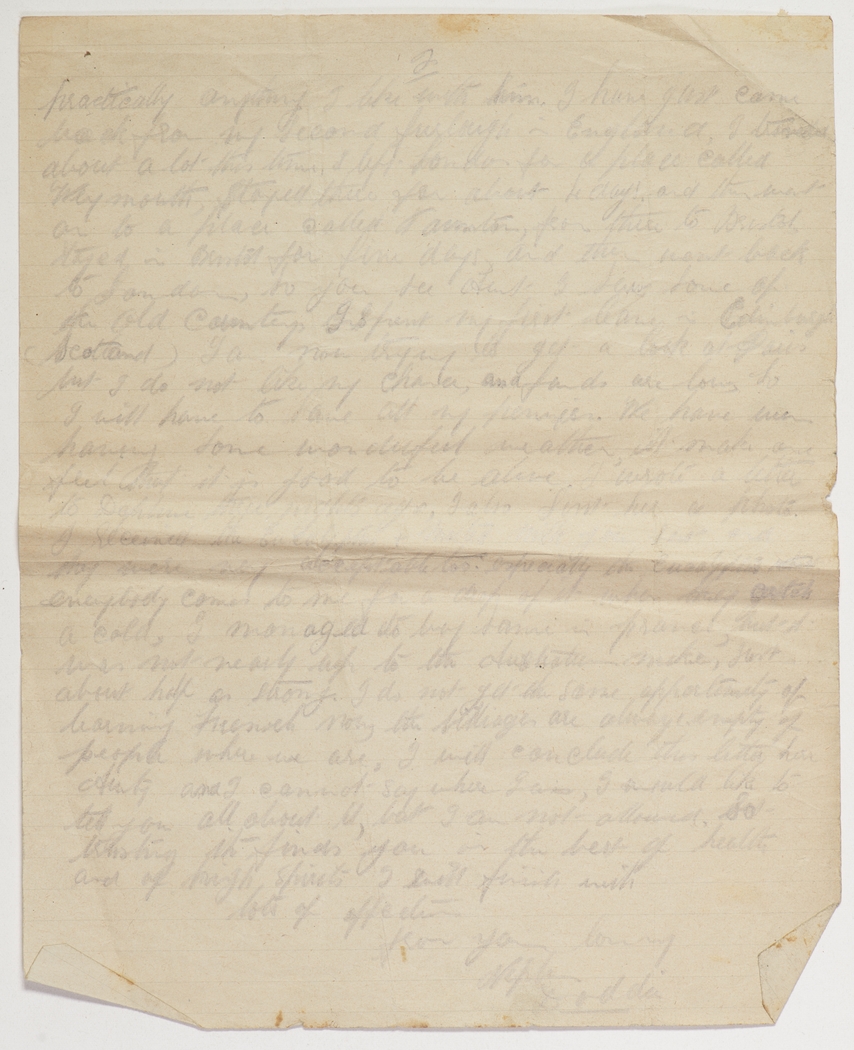 2
practically anything I like with him. I have just came
back from my second furlough in England. I
about a lot this time, I left London for a place called
Weymouth, stayed there for about 4 days, and then went
on to a place called Taunton, from there to Bristol
stayed in Bristol for five days, and then went back
to London, so you see Aunt I
the Old Country. I spent my first leave in Edinburgh
(Scotland) I a now trying to get a look at Paris
but I do not like my chance, and funds are low, so
I will have to save all my pennies. We have been
having some wonderful weather, it makes one
feel that it is good to be alive. I wrote a letter
to ago. I also sent her a photo.
I received the
they were very acceptable too. especially the Eucalyptus
everybody comes to me for a drop of it when they
a cold. I managed to buy some in France, but it
was not nearly up to the Australian make, just
about half as strong. I do not get the same opportunity of
learning French now, the villages are always empty of
people where we are, I will conclude this letter here
Aunty and I cannot say where I am, I would like to
tell you all about it, but I am not allowed. So
trusting this finds you in the best of health
and of high spirits I will finish with
lots of affection
from your loving
Nephew
Eddie